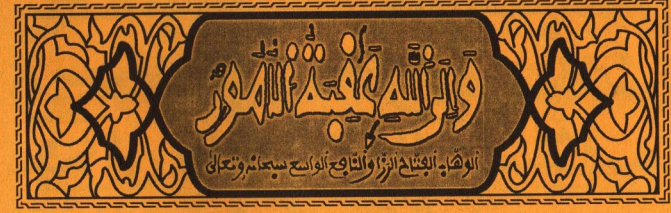 وَإِلَى اللَّهِ عَٰقِبَةُ الْأُمُورِ
الوهاب الفتاح الرزاق النافع الواسع سبحانه وتعالى